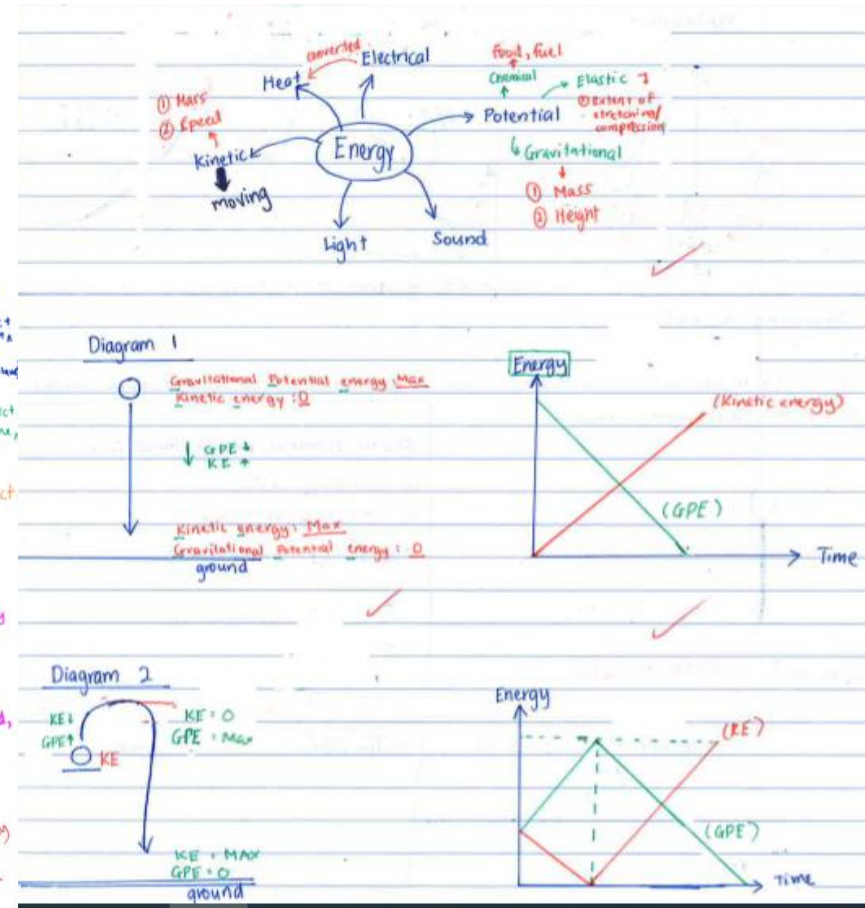 converted
Electrical
Heat
① Mass
② Speed
Kinetic
moving
Energy
Light
Sound
Food, fuel
Chemical
Potential
Elastic
② Extent of
stretching/
compression
Gravitational
① Mass
② Height
Diagram 1
Gravitational Potential energy: Max
Kinetic energy: 0
↓ GPE ↓
KE ↑
Kinetic energy: Max
Gravitational Potential energy: 0
ground
Energy
(Kinetic energy)
(GPE)
Time
Diagram 2
KE↓
GPE↑
KE
KE = 0
GPE = Max
KE = MAX
GPE = 0
ground
Energy
(KE)
(GPE)
Time